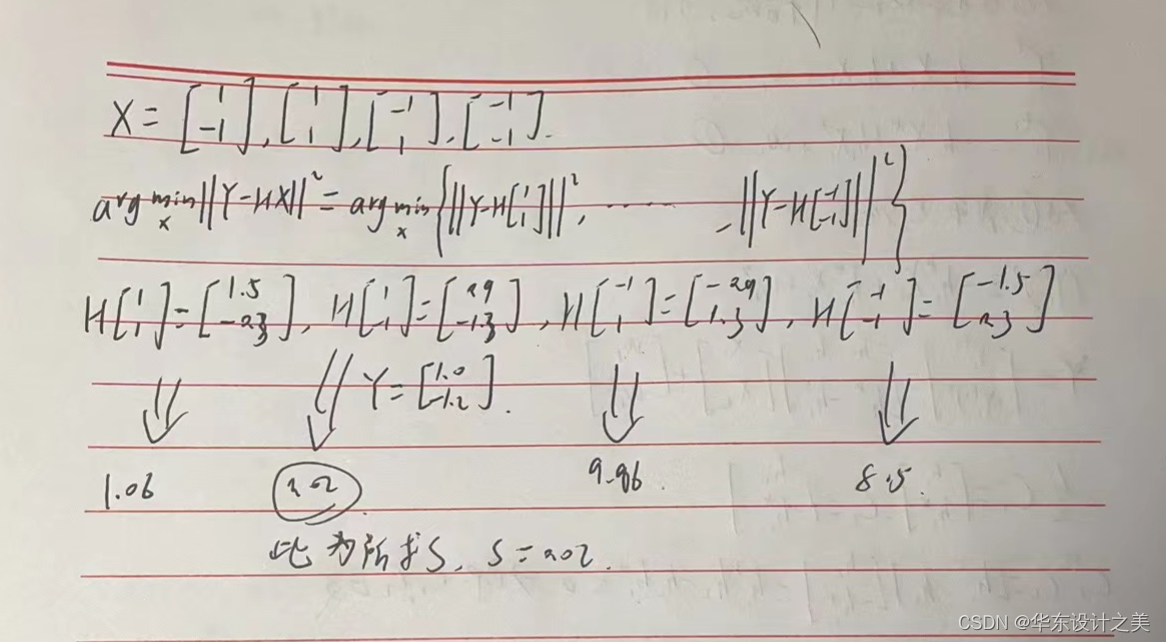 X = [1 -1], [1 1], [-1 1], [-1 -1].
arg min x ||Y-HX||² = arg min x { ||Y-H[1 1]||², ······ , ||Y-H[-1 -1]||² }
H[1 1] = [1.5 -0.3], H[1 -1] = [0.9 -1.3], H[-1 1] = [-0.9 1.3], H[-1 -1] = [-1.5 0.3]
Y = [1.0 -1.2].
1.06 0.02 9.86. 8.5.
此为所求S, S=0.02.
CSDN @华东设计之美